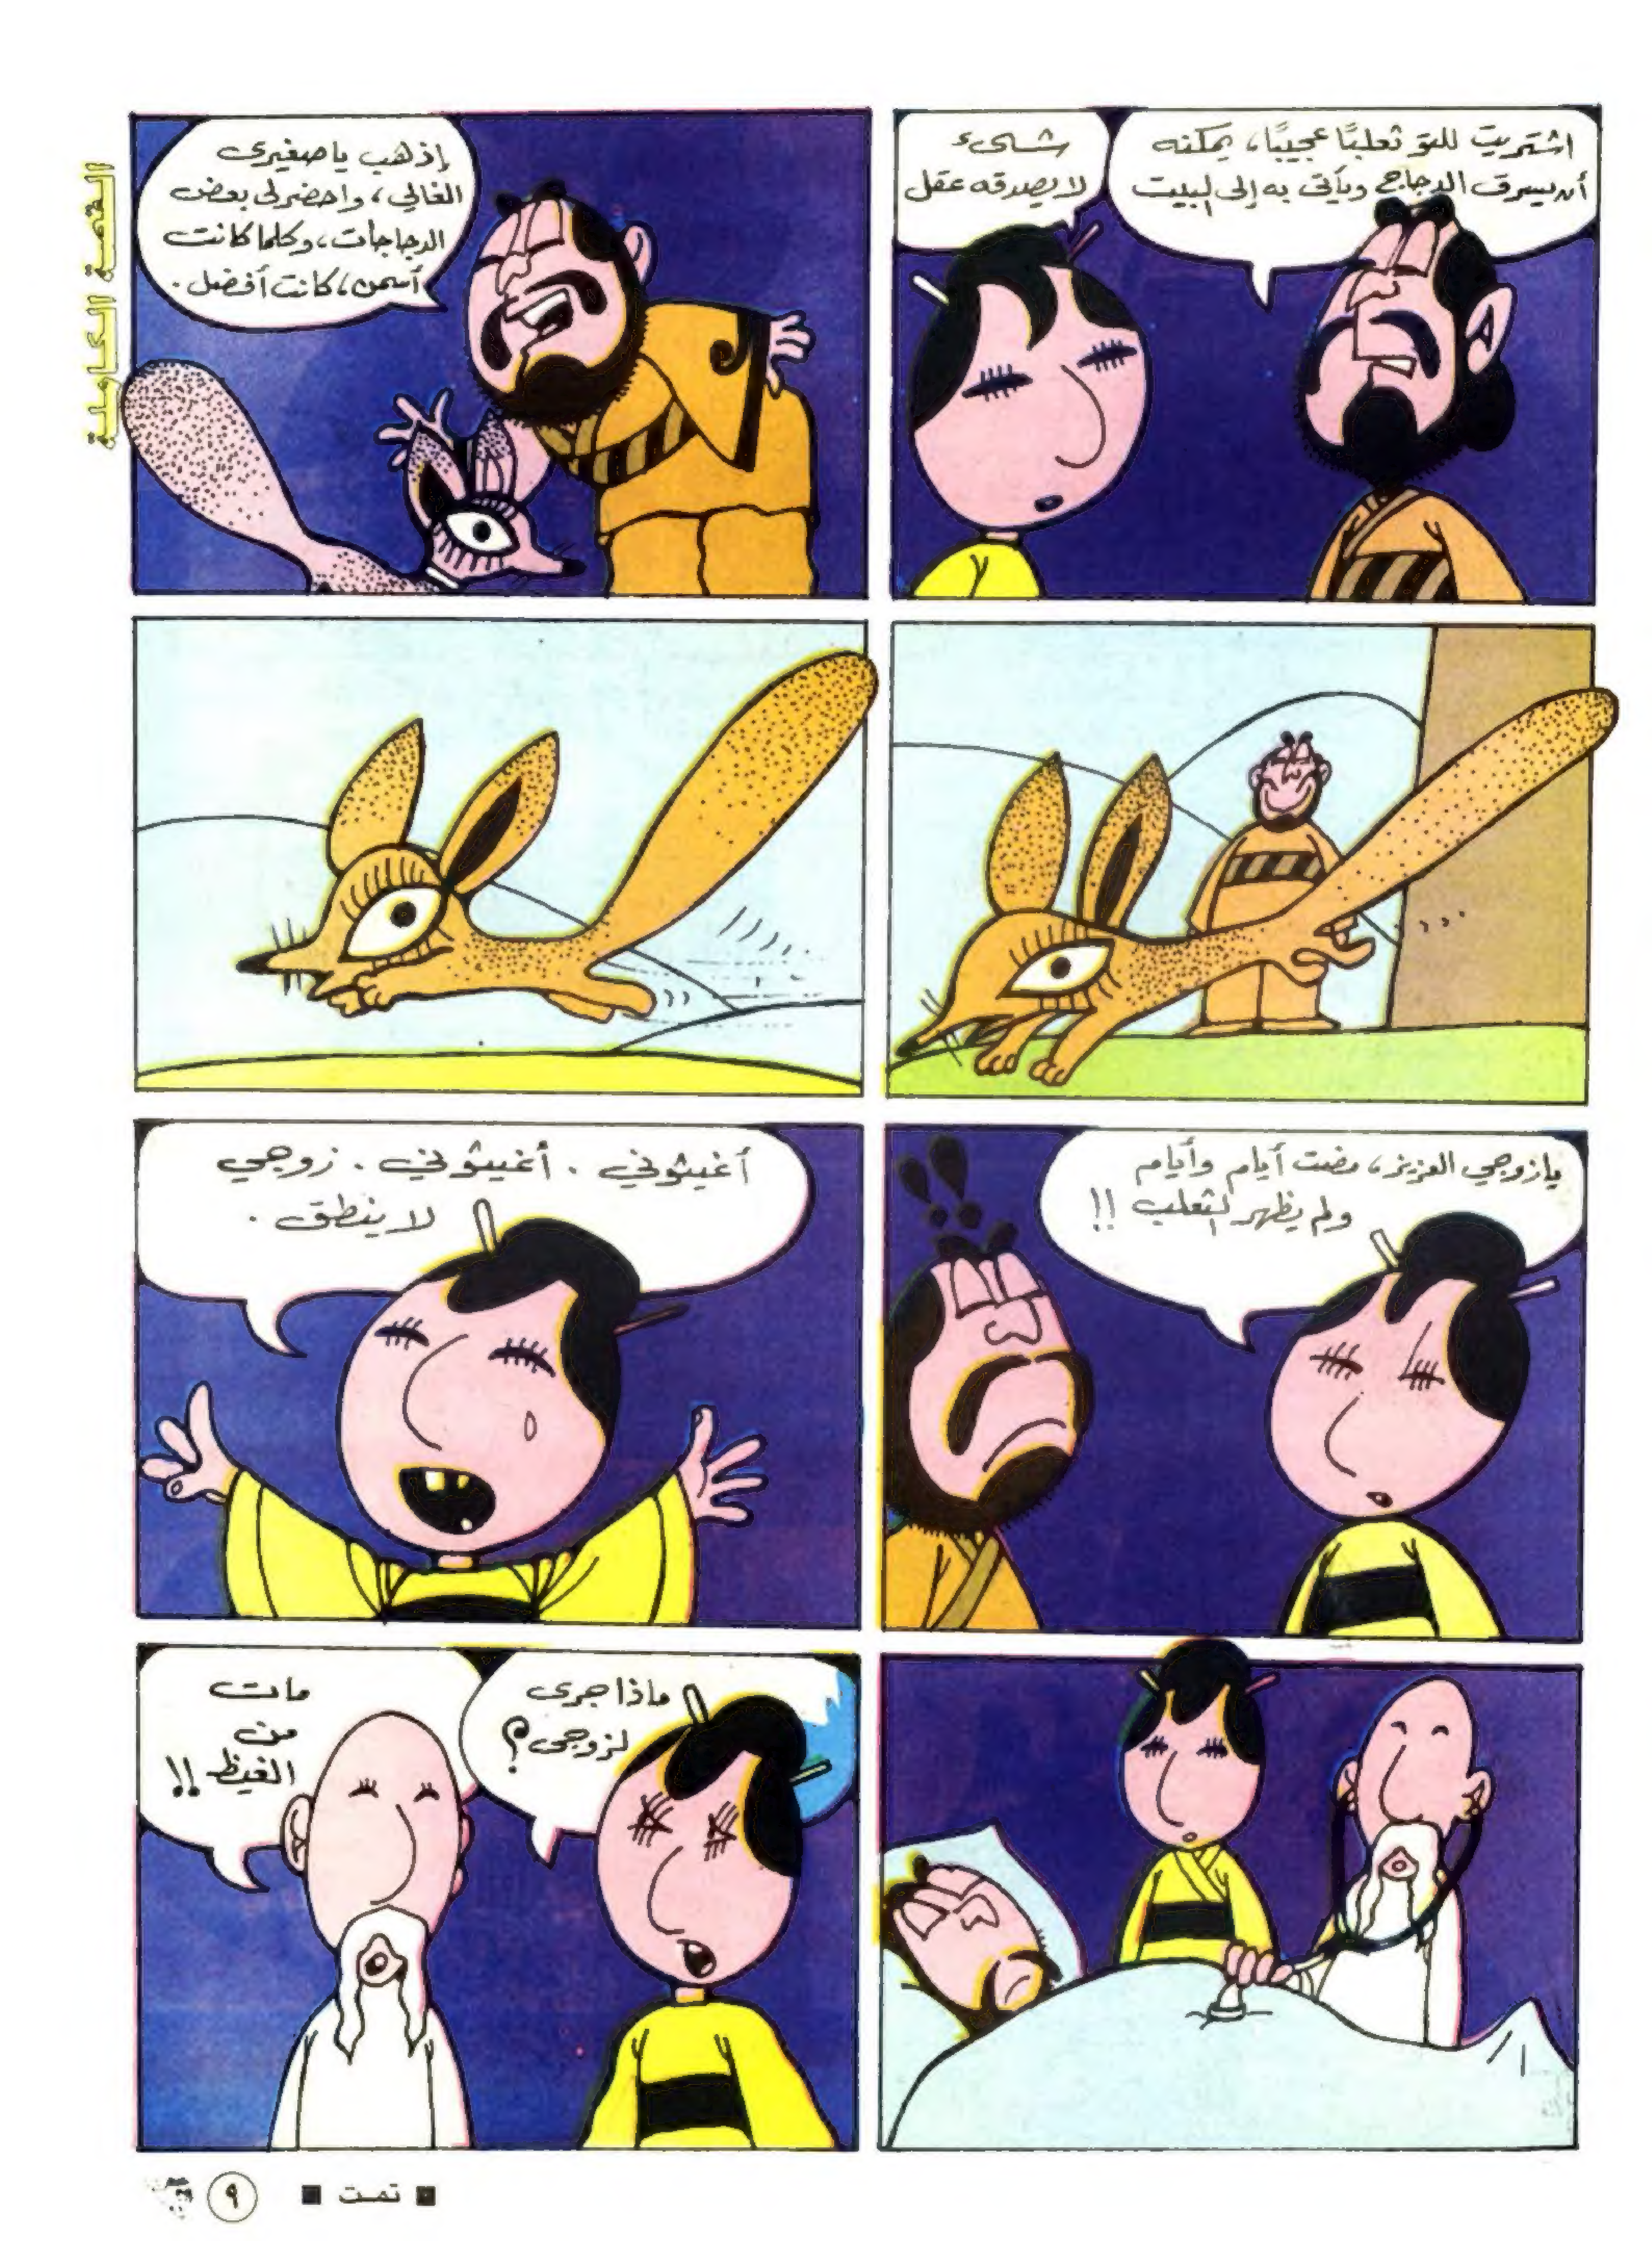 اشتريت للتو ثعلبًا عجيبًا، يمكنه
أن يسرق الدجاج ويأتى به إلى البيت
شىء
لا يصدقه عقل
إذهب يا صغيرى
الغالي، واحضر لى بعض
الدجاجات، وكلما كانت
أسمن، كانت أفضل.
القصة الكاملة
يا زوجي العزيز، مضت أيام وأيام
ولم يظهر الثعلب !!
أغيثوني . أغيثوني . زوجي
لا ينطق .
ماذا جرى
لزوجى؟
مات
من
الغيظ !!
■ تمت ■
٩